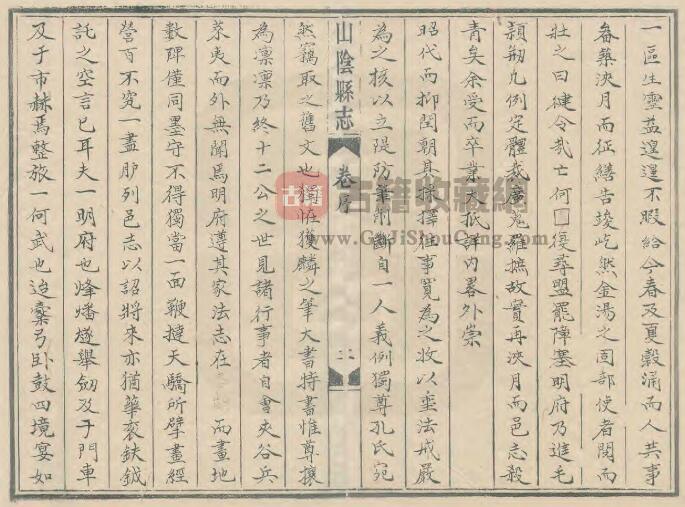 一區生靈益遑遑不暇給今春及夏穀涌而人共事
畚蓻浹月而征繕告竣屹然金湯之固部使者閱而
壯之曰健令哉亡何□復尋盟罷陣塞明府乃進毛
穎刱凡例定體裁廣蒐羅摭故實再浹月而邑志殺
青矣余受而卒業大抵詳內畧外崇
昭代而抑閏朝其採擇往事寬為之收以垂法戒嚴
為之核以立隄防筆削斷自一人義例獨尊孔氏宛
山陰縣志
卷序
二
然竊取之舊文也獨恠獲麟之筆大書特書惟尊攘
為凜凜乃終十二公之世見諸行事者自會夾谷兵
萊夷而外無聞焉明府遵其家法志在 而畫地
數碑僅同墨守不得獨當一面鞭撻天驕所擘畫經
營百不究一盡臚列邑志以詔將來亦猶華袞鈇鉞
託之空言已耳夫一明府也烽燔燧舉劒及于門車
及于市赫焉整旅一何武也迨櫜弓臥鼓四境宴如
古籍收藏網
www.GuJiShouCang.com